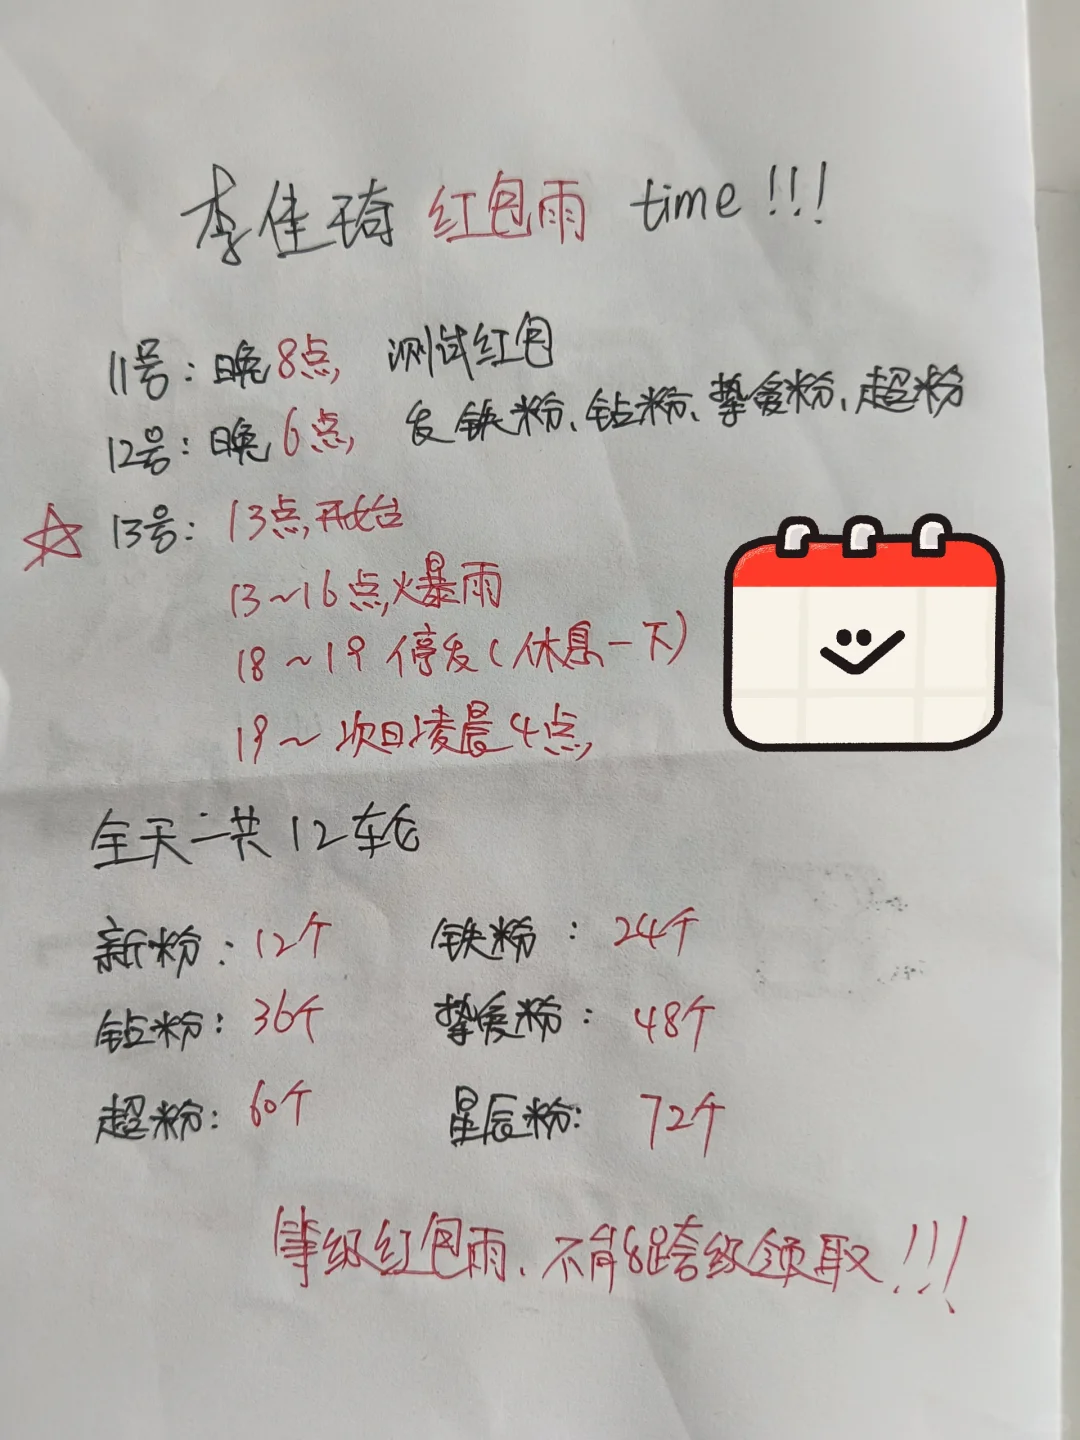 李佳琦 红包雨 time!!!
11号:晚8点, 测试红包
12号:晚6点, 发铁粉、钻粉、挚爱粉、超粉
☆ 13号:13点,开始
13~16点,火暴雨
18~19 停发(休息一下)
19~次日凌晨4点,
全天一共12轮
新粉:12个 铁粉:24个
钻粉:36个 挚爱粉:48个
超粉:60个 星辰粉:72个
等级红包雨、不能跨级领取!!!